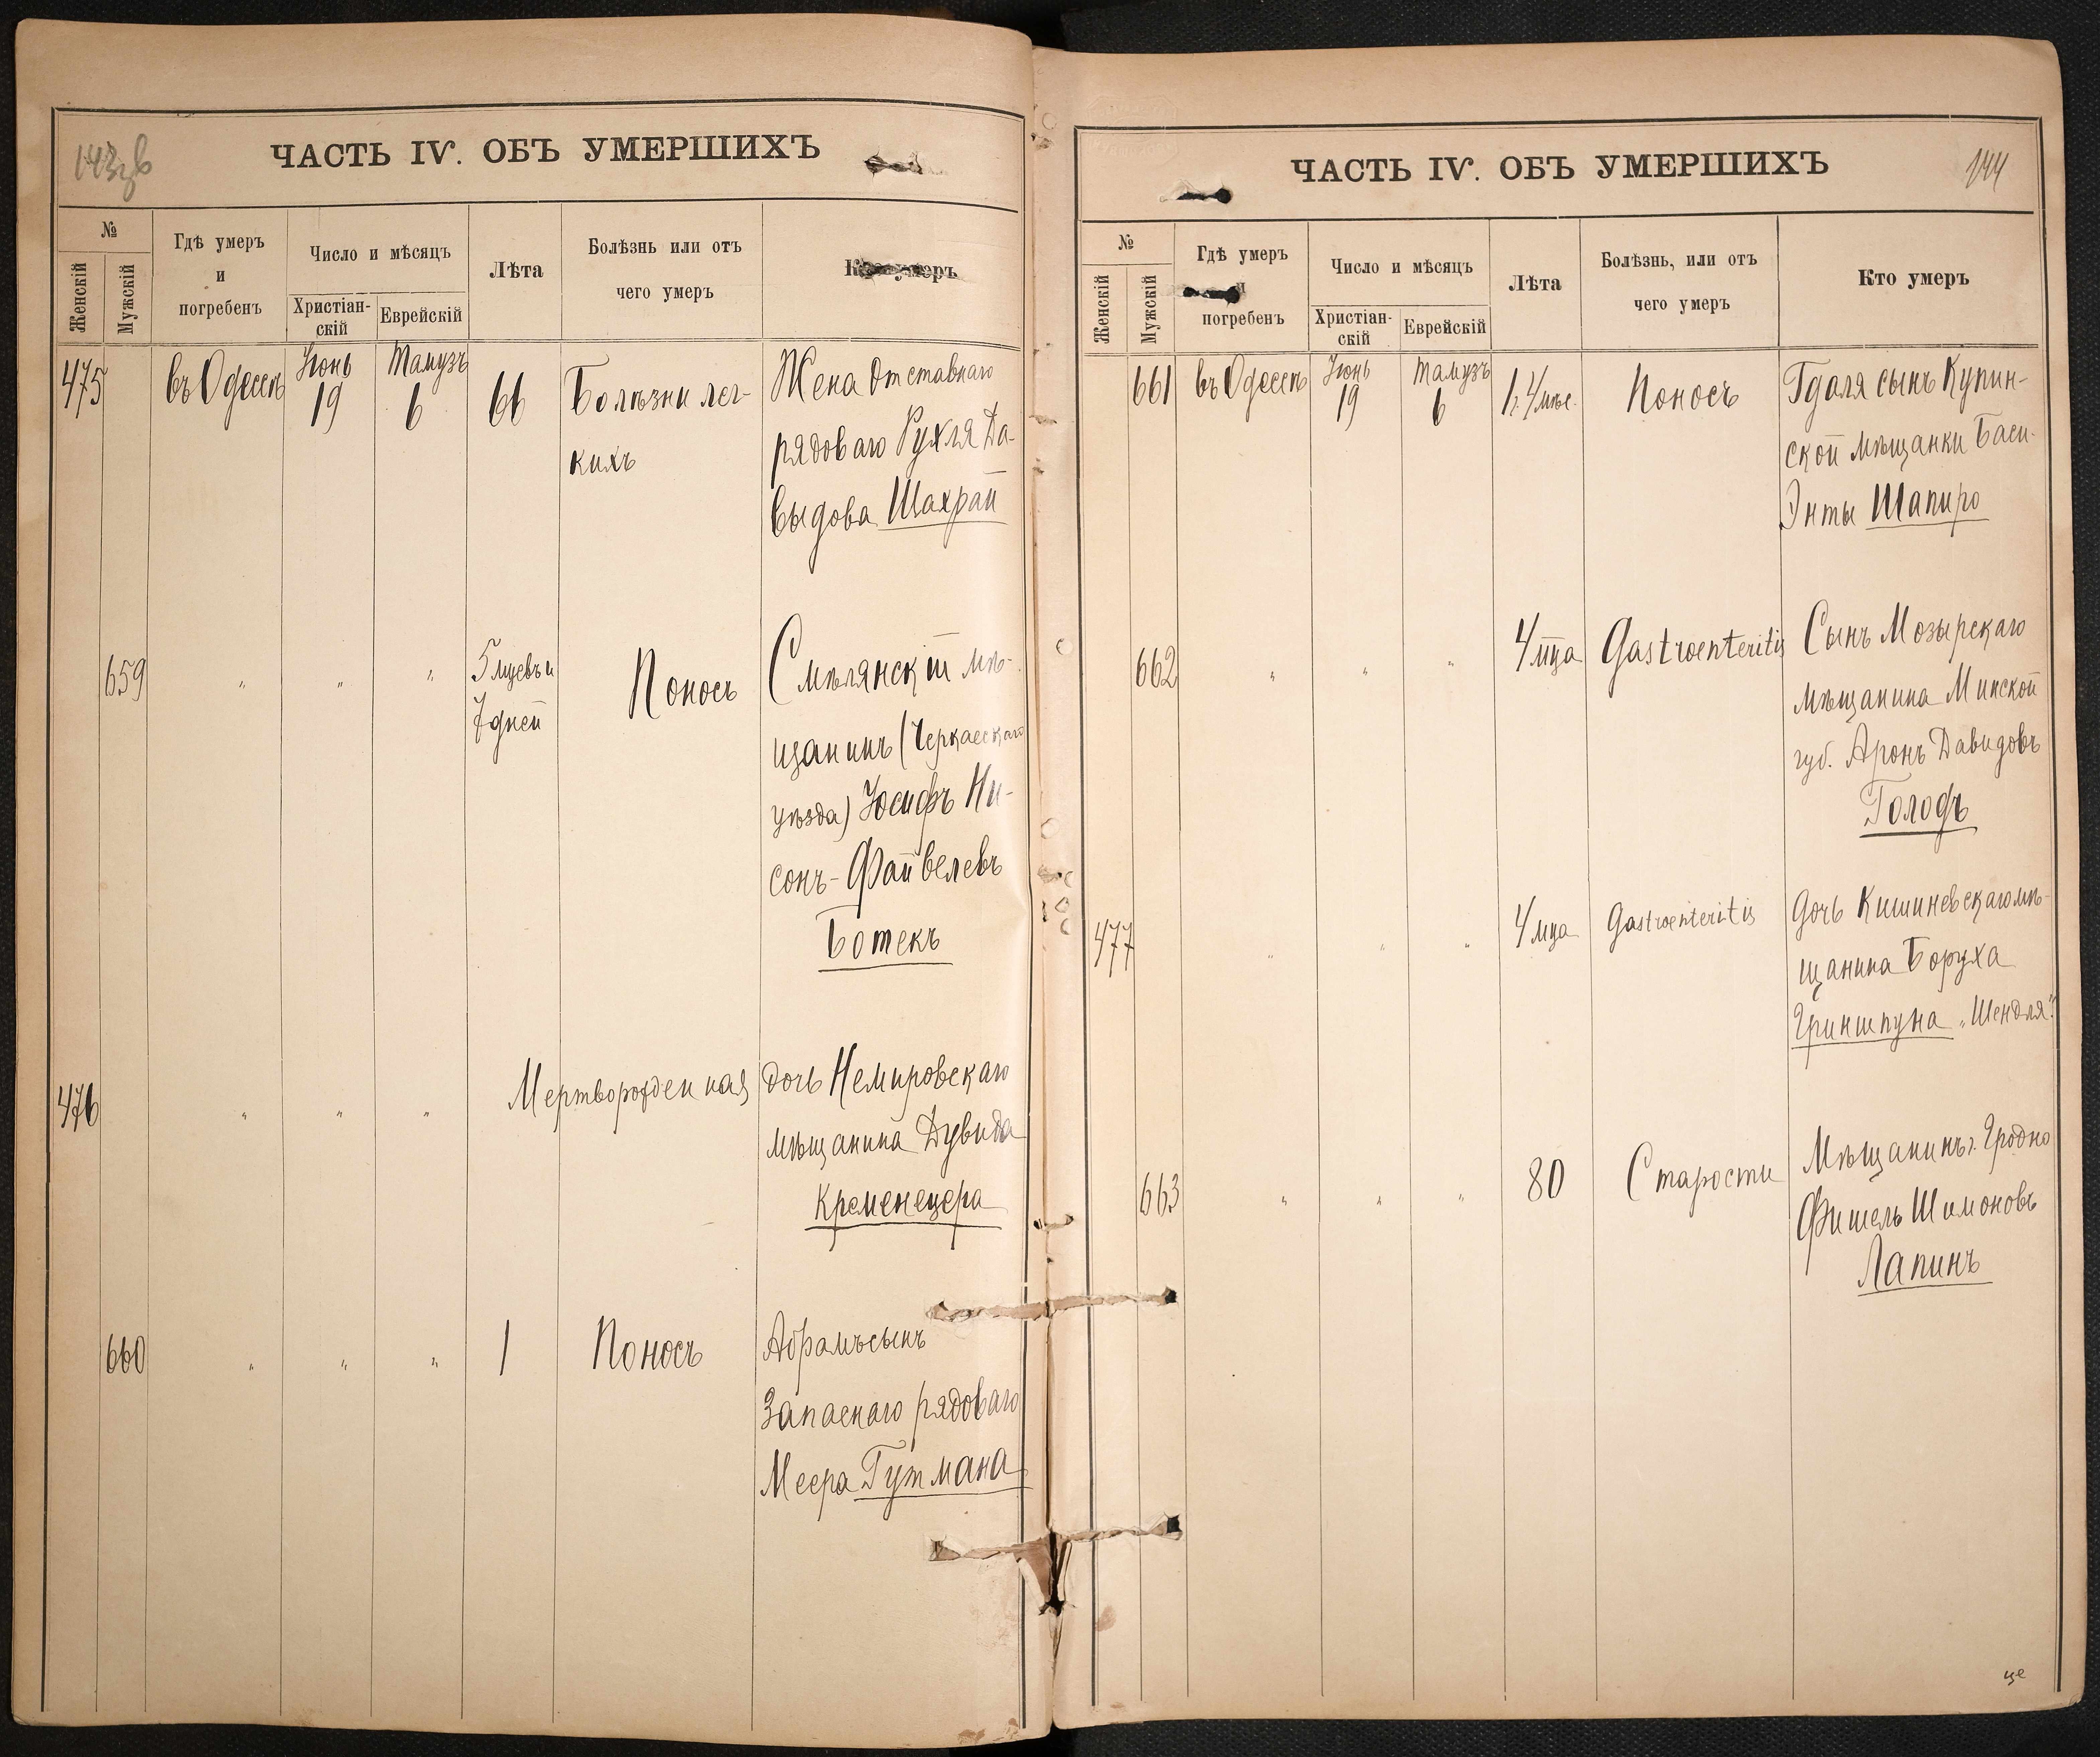 143об
ЧАСТЬ IV. ОБЪ УМЕРШИХЪ
№
Женскій
Мужскій
Гдѣ умеръ
и
погребенъ
Число и мѣсяцъ
Христіан-
скій
Еврейскій
Лѣта
Болѣзнь или отъ
чего умеръ
Кто умеръ
475
въ Одессѣ
Іюнь
19
Тамузъ
6
66
Болѣзни лег-
кихъ
Жена отставнаго
рядоваго Рухля Да-
выдова Шахрай
659
"
"
"
5 мцевъ и
7 дней
Поносъ
Смѣлянскій мѣ-
щанинъ (Черкасскаго
уѣзда) Іосифъ Ни-
сонъ-Файвелевъ
Ботекъ
476
"
"
"
Мертворожденная
дочь Немировскаго
мѣщанина Дувида
Кременецера
660
"
"
"
1
Поносъ
Абрамъ сынъ
Запаснаго рядоваго
Меера Гутмана
144
ЧАСТЬ IV. ОБЪ УМЕРШИХЪ
№
Женскій
Мужскій
Гдѣ умеръ
и
погребенъ
Число и мѣсяцъ
Христіан-
скій
Еврейскій
Лѣта
Болѣзнь, или отъ
чего умеръ
Кто умеръ
661
въ Одессѣ
Іюнь
19
Тамузъ
6
1 г. 4 мѣс.
Поносъ
Гдаля сынъ Купин-
ской мѣщанки Баси-
Энты Шапиро
662
"
"
"
4 мца
Gastroenteritis
Сынъ Мозырскаго
мѣщанина Минской
губ. Аронъ Давидовъ
Голодъ
477
"
"
"
4 мца
Gastroenteritis
дочь Кишиневскаго мѣ-
щанина Боруха
Гриншпуна "Шендля".
663
"
"
"
80
Старости
Мѣщанинъ г. Гродно
Фишель Шимоновъ
Лапинъ